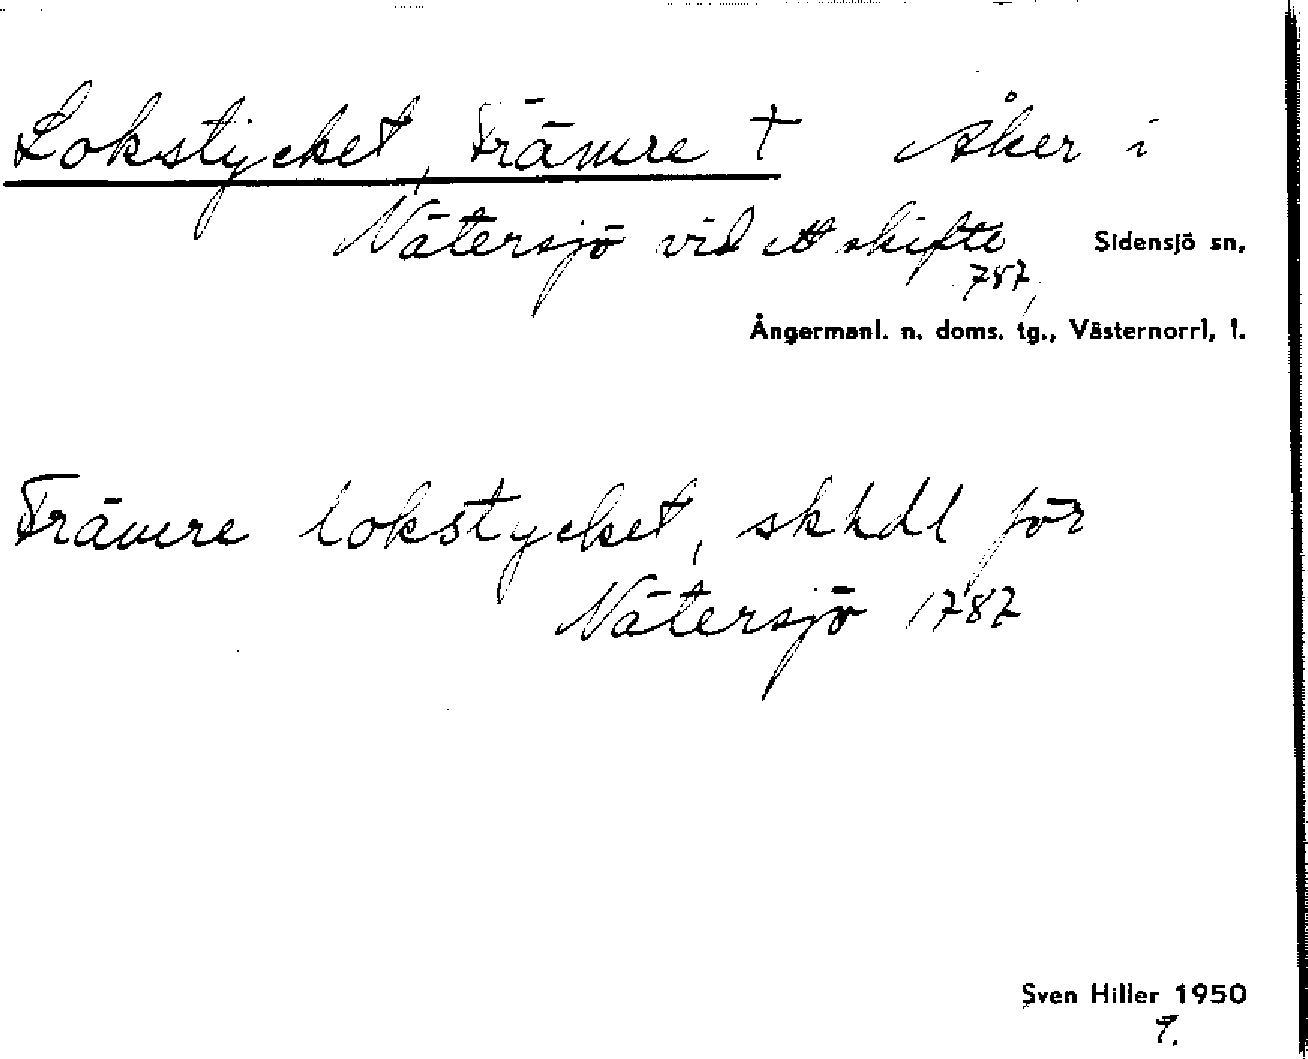 Lokstycket, Främre † Åker i
Nätersjö vid ett skifte Sidensjö sn.
787,
Ångermanl. n. doms. tg., Västernorrl. l.
Främre lokstycket, skhdl för
Nätersjö 1787
Sven Hiller 1950